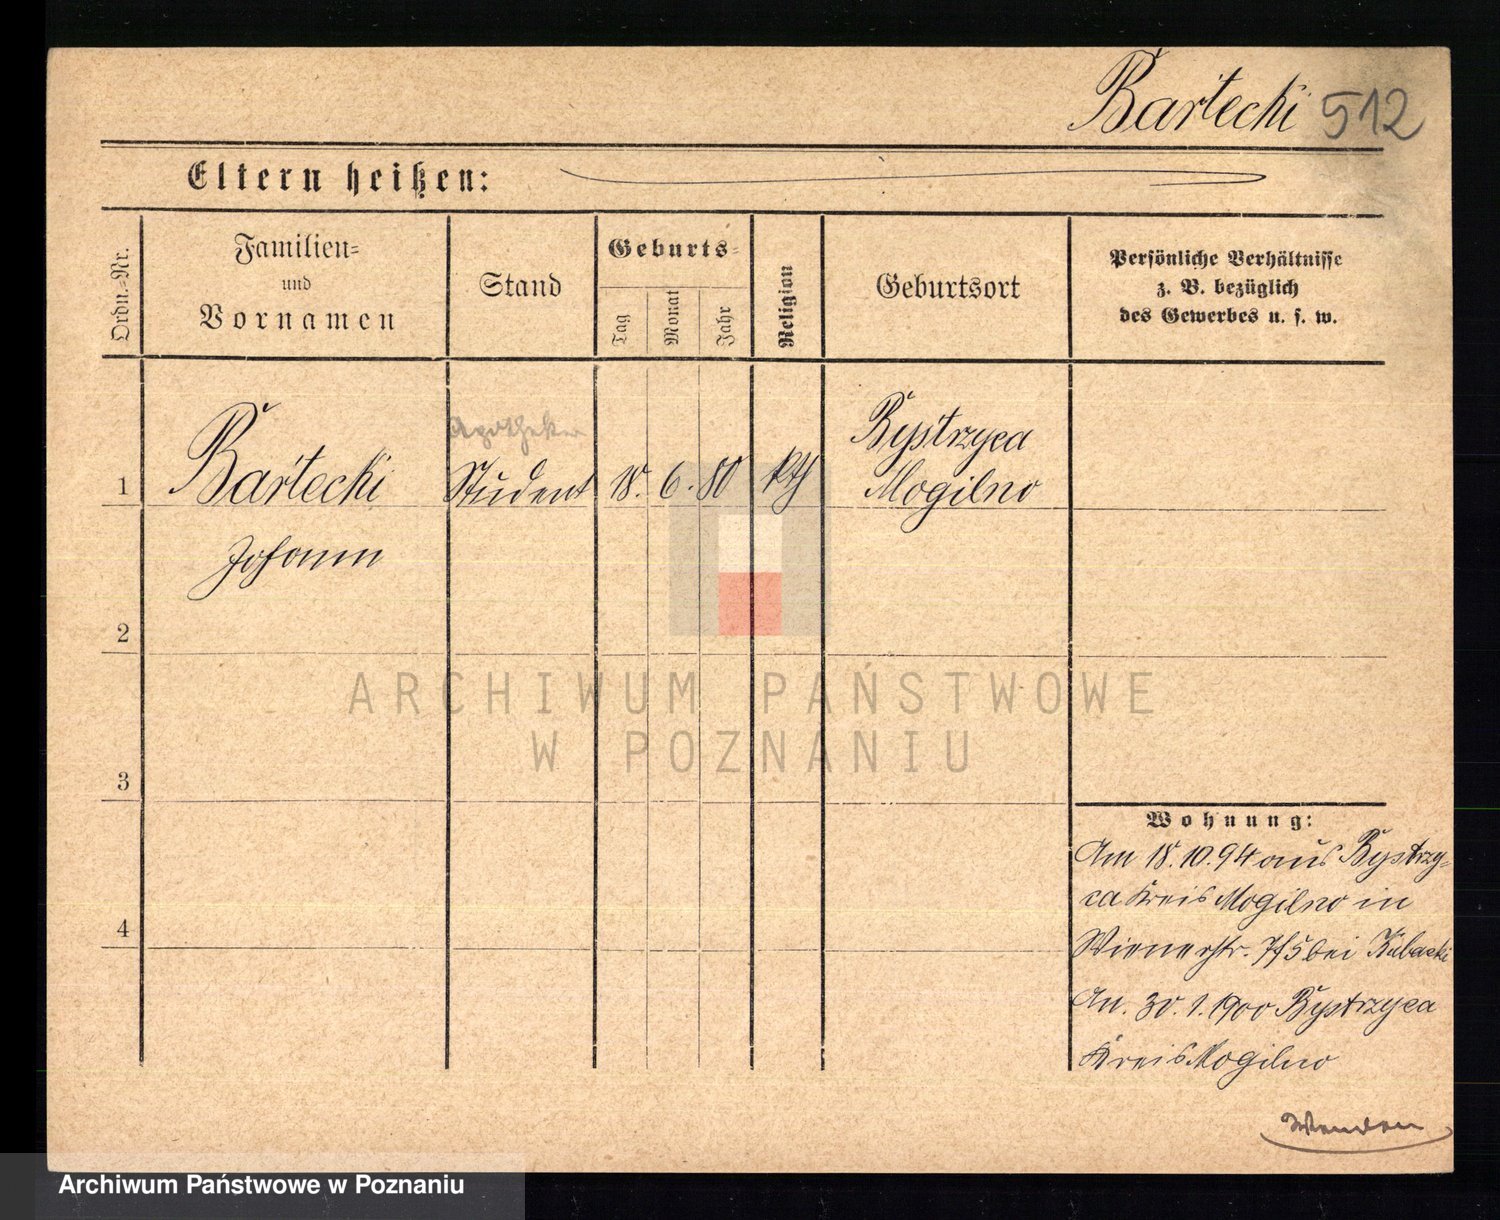 Bartecki 512
Eltern heißen:
Ordn.=Nr.
Familien=
und
Vornamen
Stand
Geburts=
Tag
Monat
Jahr
Religion
Geburtsort
Persönliche Verhältnisse
z. B. bezüglich
des Gewerbes u. s. w.
Apotheker
1 Bartecki Student 18. 6. 80 kth Bystrzyca
Mogilno
Johann
2
3
4
Wohnung:
Am 18.10.94 aus Bystrzy=
ca Kreis Mogilno in
Wienerstr. 7/5 bei Kubacki
An. 30.1.1900 Bystrzyca
Kreis Mogilno
Wenden
ARCHIWUM PAŃSTWOWE
W POZNANIU
Archiwum Państwowe w Poznaniu